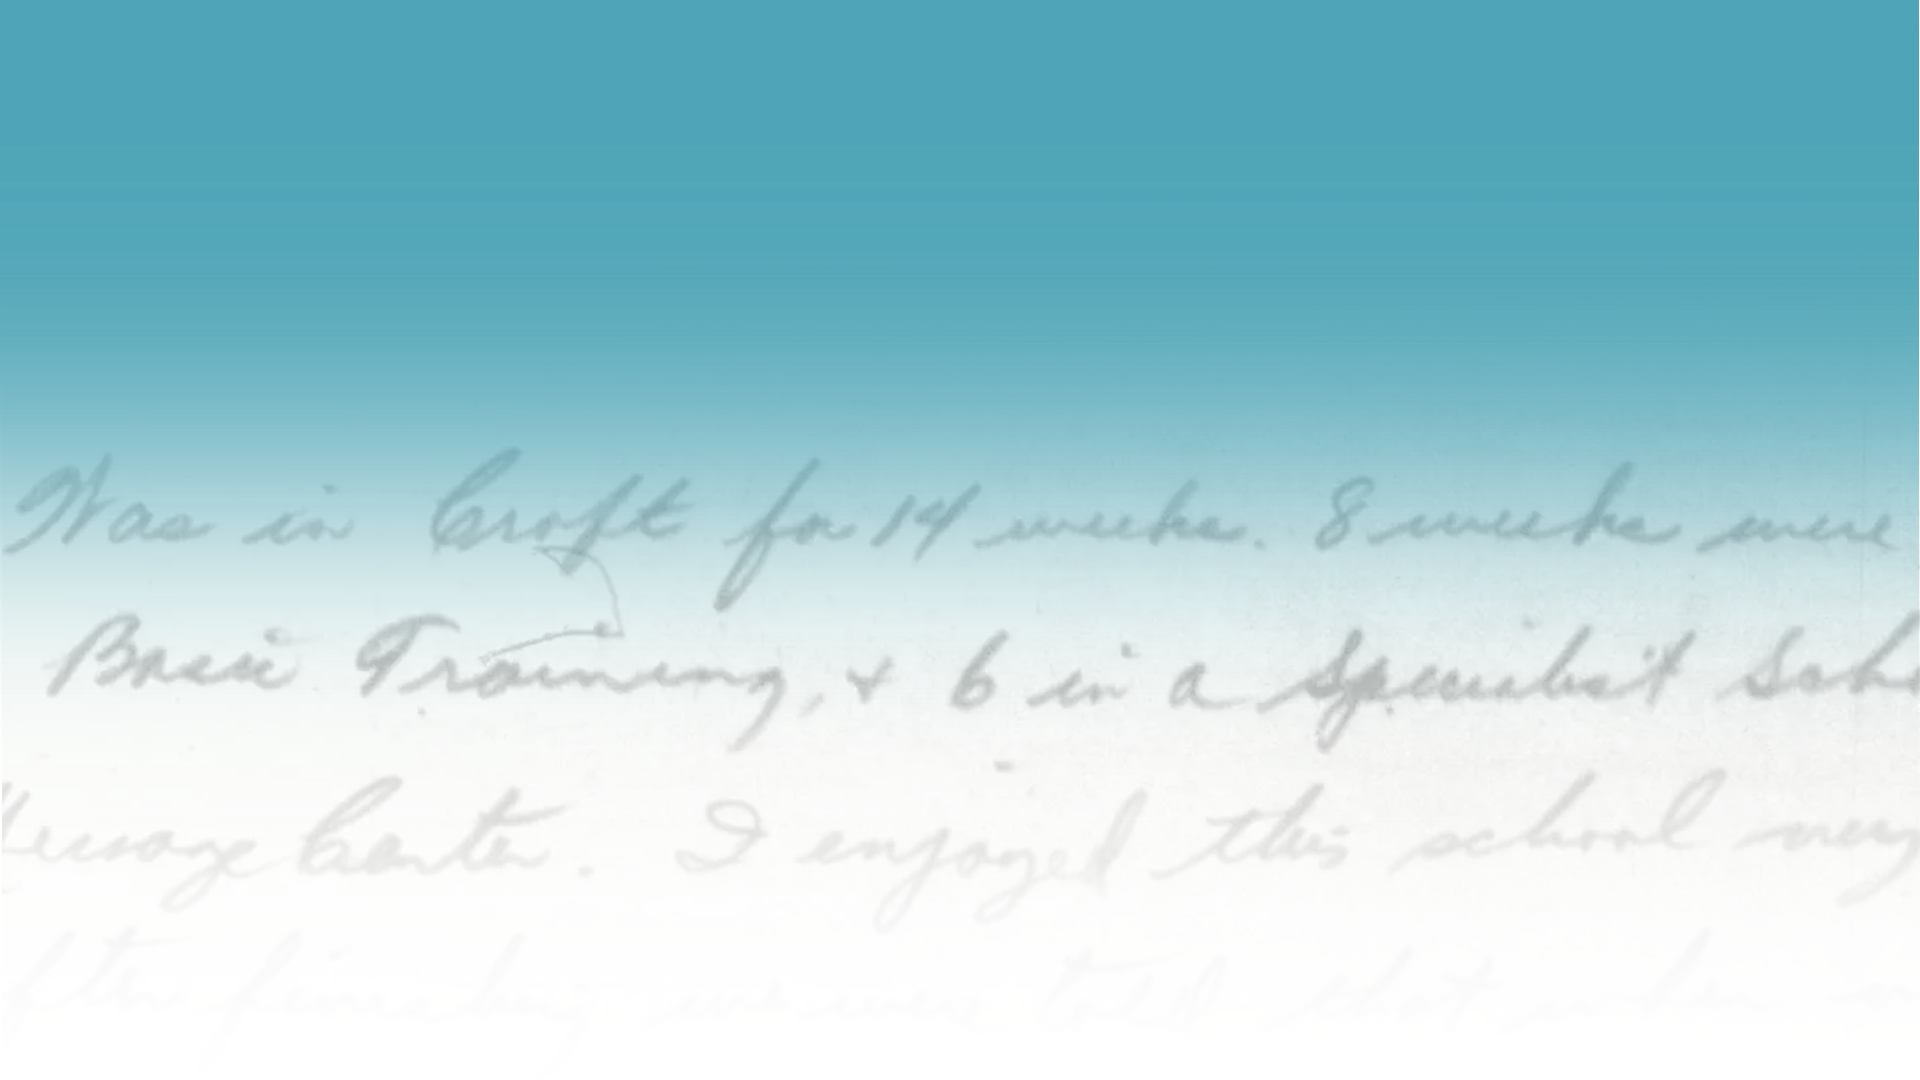 Was in Croft for 14 weeks. 8 weeks were
Basic Training, & 6 in a Specialist Scho
Message Center. I enjoyed this school very
fter finishing we were told that when